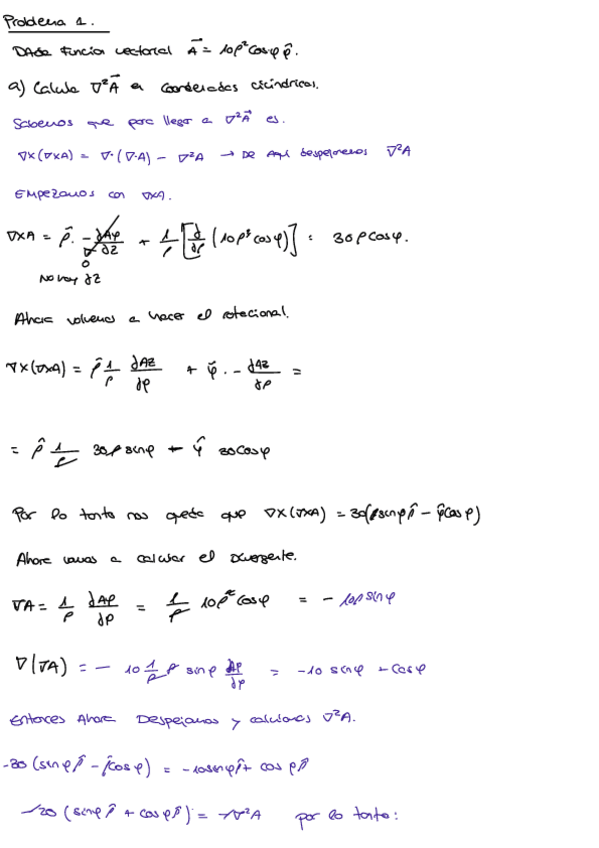 Problema 1.
Dada funcion vectorial A⃗ = 10ρ²cosφ φ̂.
a) Calcula ∇²A⃗ en coordenadas cilíndricas.
Sabemos que para llegar a ∇²A⃗ es.
∇x(∇xA) = ∇·(∇·A) - ∇²A → De aquí despejaremos ∇²A
Empezamos con ∇xA.
∇xA = ρ̂. - ∂Aφ/∂z + 1/ρ [∂/∂ρ (10ρ³cosφ)] = 30ρcosφ.
0
No hay ∂z
Ahora volvemos a hacer el rotacional.
∇x(∇xA) = ρ̂ 1/ρ ∂Az/∂φ + φ̂. - ∂Az/∂ρ =
= ρ̂ 1/ρ 30ρ sinφ - φ̂ 30cosφ
Por lo tanto nos queda que ∇x(∇xA) = 30(sinφ ρ̂ - φ̂cosφ)
Ahora vamos a calcular el divergente.
∇A = 1/ρ ∂Aφ/∂φ = 1/ρ 10ρ²cosφ = - 10ρ sinφ
∇(∇A) = - 10 1/ρ ρ sinφ ∂φ/∂φ = -10 sinφ - cosφ
Entonces Ahora Despejamos y calculamos ∇²A.
-30(sinφ ρ̂ - φ̂cosφ) = -10sinφ ρ̂ + cosφ ρ̂
-20(sinφ ρ̂ + cosφ ρ̂) = -∇²A por lo tanto: